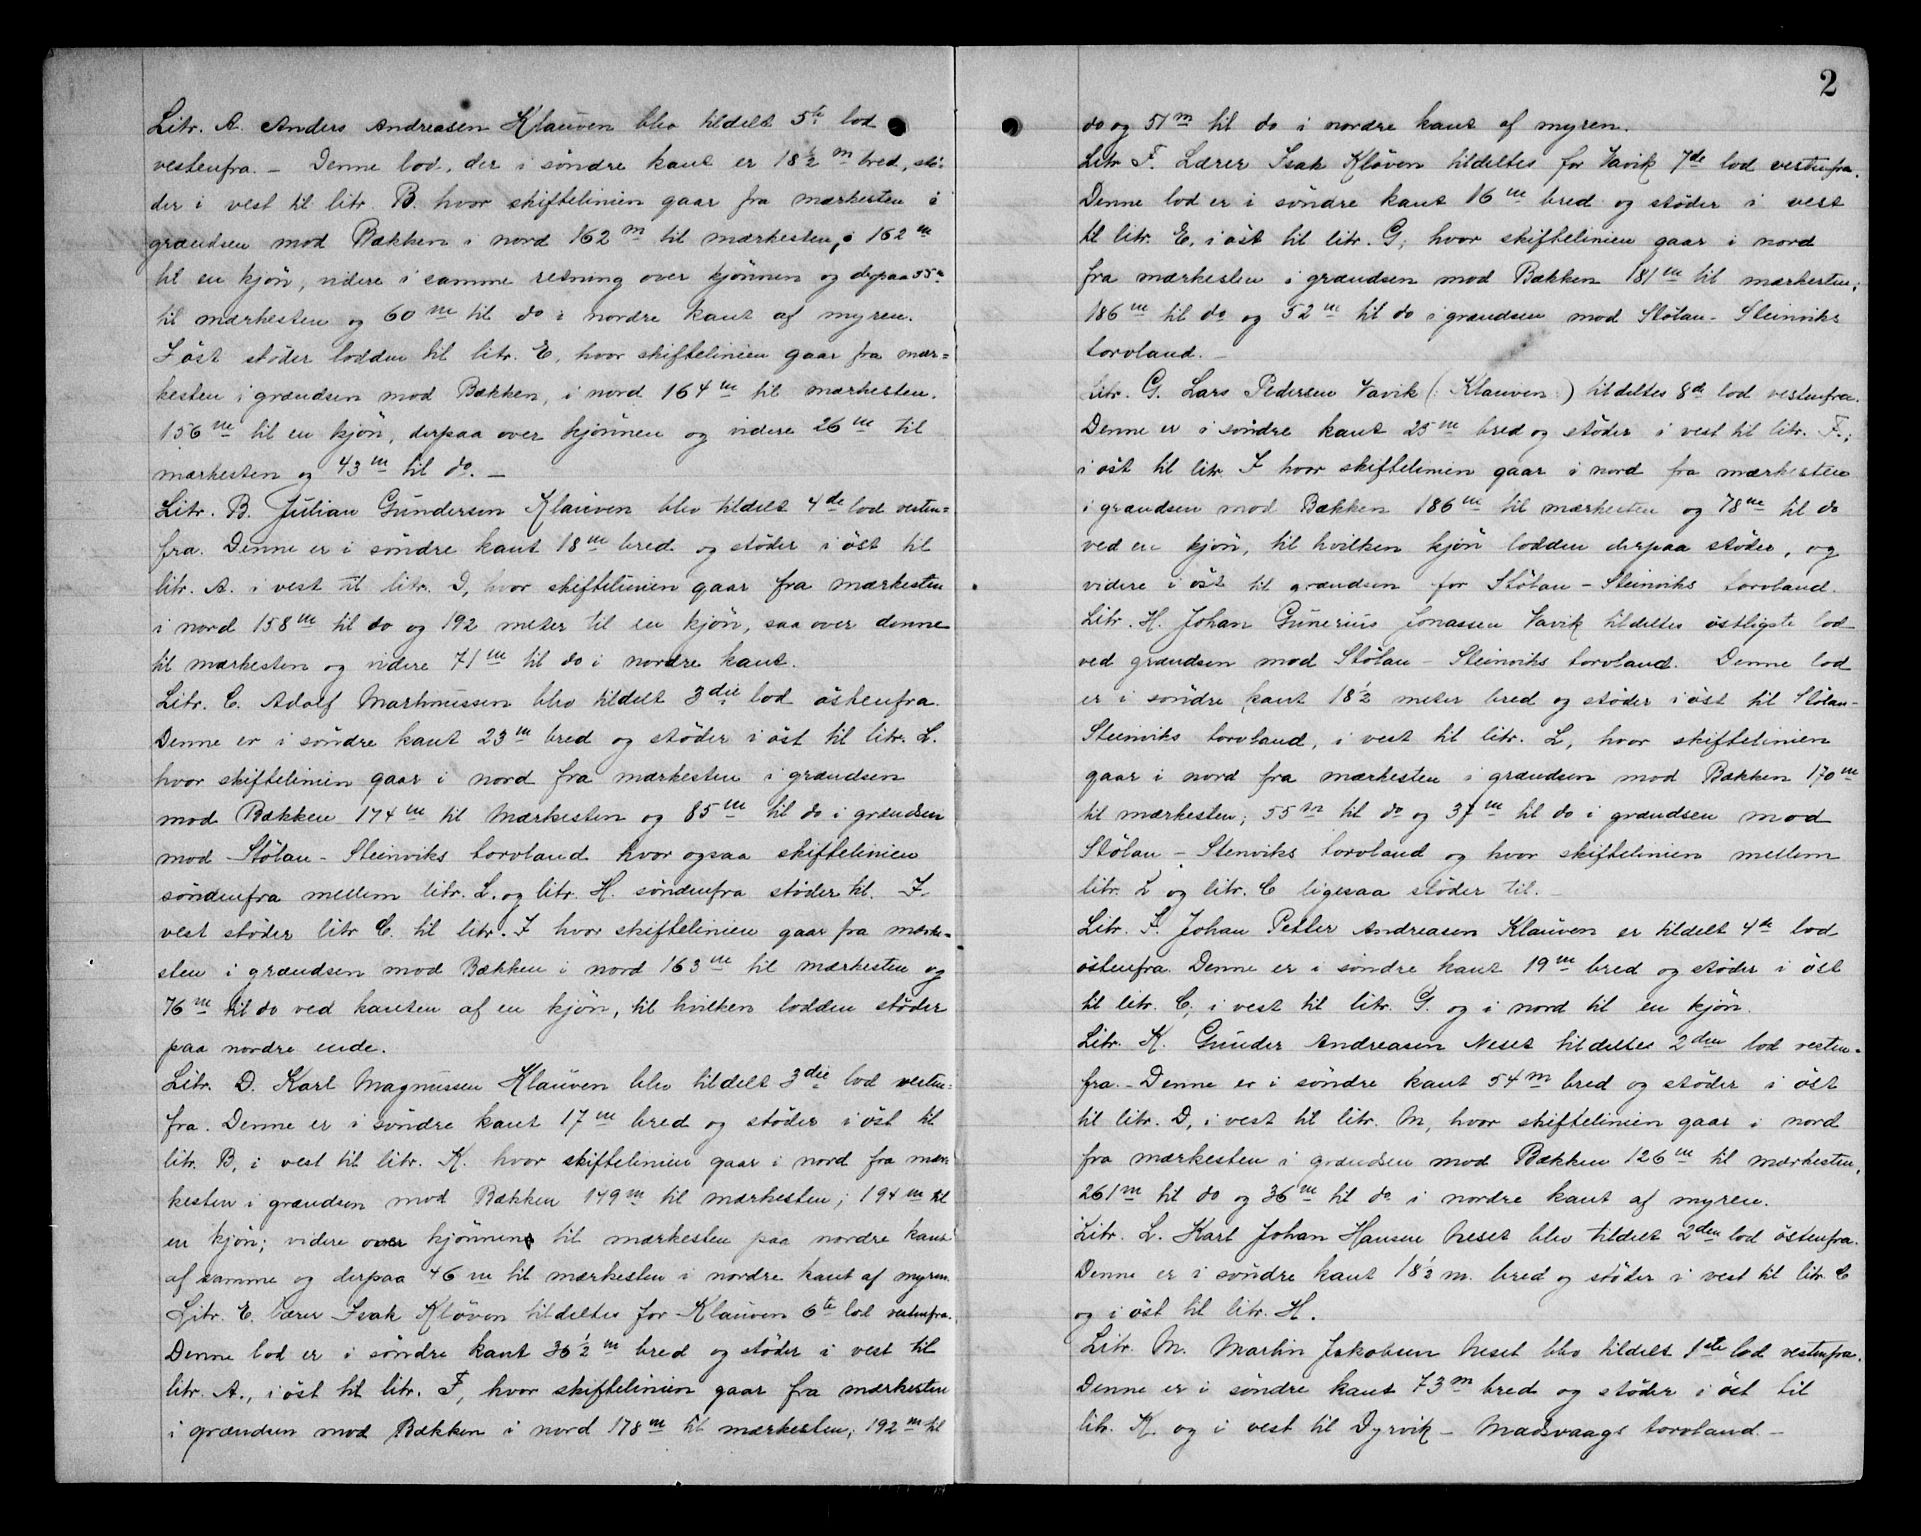 Litr. A. Anders Andreasen Klauven blev tildelt 5te lod
vestenfra. - Denne lod, der i söndre kant er 18 1/2 m bred, stö-
der i vest til litr. B. hvor skiftelinien gaar fra mærkesten i
grændsen mod Bækken i nord 162 m til mærkesten, 162 m
til en kjön, videre i samme retning over kjönnen og derpaa 55 m
til mærkesten og 60 m til do i nordre kant af myren.
I öst stöder lodden til litr. E, hvor skiftelinien gaar fra mær=
kesten i grændsen mod Bækken, i nord 164 m til mærkesten.
156 m til en kjön, derpaa over kjönnen og videre 26 m til
mærkesten og 43 m til do. -
Litr. B. Julian Gundersen Klauven blev tildelt 4de lod vesten=
fra. Denne er i söndre kant 18 m bred og stöder i öst til
litr. A. i vest til litr. D, hvor skiftelinien gaar fra mærkesten
i nord 158 m til do og 192 meter til en kjön, saa over denne
til mærkesten og videre 71 m til do i nordre kant.
Litr. C. Adolf Martinussen blev tildelt 3die lod östenfra.
Denne er i söndre kant 23 m bred og stöder i öst til litr. L.
hvor skiftelinien gaar i nord fra mærkesten i grændsen
mod Bækken 174 m til mærkesten og 85 m til do i grændsen
mod Stölan - Steinviks torvland hvor ogsaa skiftelinien
söndenfra mellem litr. L. og litr. H. söndenfra stöder til. I
vest stöder litr C. til litr. I hvor skiftelinien gaar fra mærke-
sten i grændsen mod Bækken i nord 163 m til mærkesten og
76 m til do ved kanten af en kjön, til hvilken lodden stöder
paa nordre ende.
Litr. D. Karl Magnussen Klauven blev tildelt 3die lod vesten-
fra. Denne er i söndre kant 17 m bred og stöder i öst til
litr. B, i vest til litr. K. hvor skiftelinien gaar i nord fra mær
kesten i grændsen mod Bækken 149 m til mærkesten, 194 m til
en kjön; videre over kjönnen til mærkesten paa nordre kant
af samme og derpaa 46 m til mærkesten i nordre kant af myren.
Litr. E. Lærer Isak Klöven tildeltes for Klauven 6te lod vestenfra.
Denne lod er i söndre kant 36 1/2 m bred og stöder i vest til
litr. A., i öst til litr. F, hvor skiftelinien gaar fra mærkesten
i grændsen mod Bækken i nord 178 m til mærkesten, 192 m til
2
do og 51 m til do i nordre kant af myren.
Litr F. Lærer Isak Klöven tildeltes for Vavik 7de lod vestenfra.
Denne lod er i söndre kant 16 m bred og stöder i vest
til litr. E, i öst til litr. G, hvor skiftelinien gaar i nord
fra mærkesten i grændsen mod Bækken 181 m til mærkesten;
186 m til do og 52 m til do i grændsen mod Stölan - Steinviks
torvland. -
Litr. G. Lars Pedersen Vavik (: Klauven :) tildeltes 8de lod vestenfra.
Denne er i söndre kant 25 m bred og stöder i vest til litr. F.;
i öst til litr. I hvor skiftelinien gaar i nord fra mærkesten
i grændsen mod Bækken 186 m til mærkesten og 78 m til do
ved en kjön, til hvilken kjön lodden derpaa stöder, og
videre i öst til grændsen for Stölan - Steinviks torvland.
Litr. H. Johan Gunerius Jonassen Vavik tildeltes östligste lod
ved grændsen mod Stölan - Steinviks torvland. Denne lod
er i söndre kant 18 1/2 meter bred og stöder i öst til Stölan -
Steinviks torvland, i vest til litr. L, hvor skiftelinien
gaar i nord fra mærkesten i grændsen mod Bækken 170 m
til mærkesten; 55 m til do og 37 m til do i grændsen mod
Stölan - Stenviks torvland og hvor skiftelinien mellem
litr. L og litr. C ligesaa stöder til. -
Litr. I. Johan Petter Andreasen Klauven er tildelt 4de lod
östenfra. Denne er i söndre kant 19 m bred og stöder i öst
til litr. C, i vest til litr. G. og i nord til en kjön.
Litr. K. Gunder Andreasen Neset tildeltes 2den lod vesten-
fra. - Denne er i söndre kant 54 m bred og stöder i öst
til litr. D, i vest til litr. M, hvor skiftelinien gaar i nord
fra mærkesten i grændsen mod Bækken 126 m til mærkesten,
261 m til do og 36 m til do i nordre kant af myren.
Litr. L. Karl Johan Hansen Neset blev tildelt 2den lod östenfra.
Denne er i söndre kant 18 1/2 m. bred og stöder i vest til litr C
og i öst til litr. H.
Litr. M. Martin Jakobsen Neset blev tildelt 1ste lod vestenfra.
Denne er i söndre kant 73 m bred og stöder i öst til
litr. K. og i vest til Dyrvik - Madsvaags torvland. -